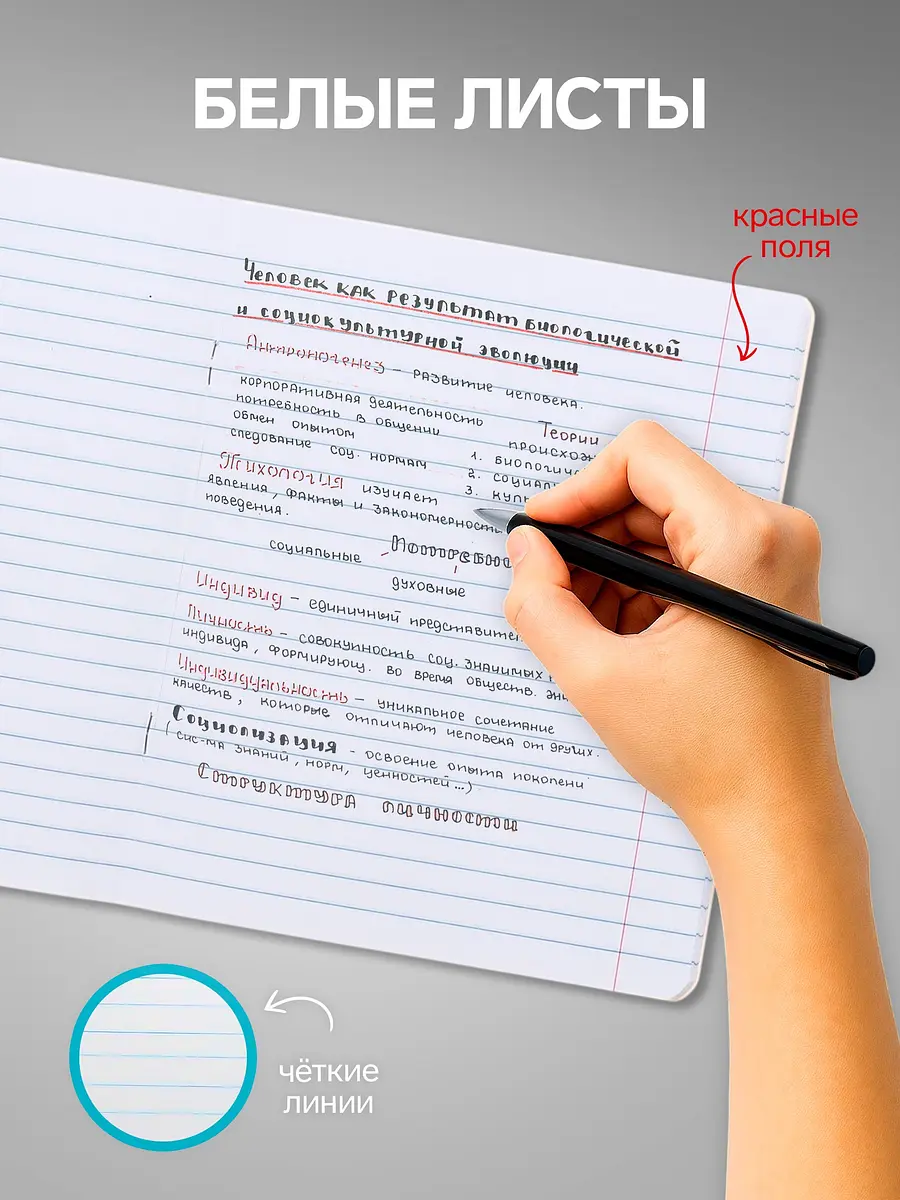 БЕЛЫЕ ЛИСТЫ
красные
поля
Человек как результат биологической
и социокультурной эволюции
Антропогенез – развитие человека.
корпоративная деятельность
потребность в общении
обмен опытом
следование соц. нормам
Теории
происхож
1. биологич
2. социал
3. куль
Психология изучает
явления, факты и закономерности
поведения.
социальные
Потребно
духовные
Индивид – единичный представител
Личность – совокупность соц. значимых
индивида, формирующ. во время обществ.
Индивидуальность – уникальное сочетание
качеств, которые отличают человека от других.
Социализация – освоение опыта поколени
(сис-ма знаний, норм, ценностей...)
Структура личности
чёткие
линии